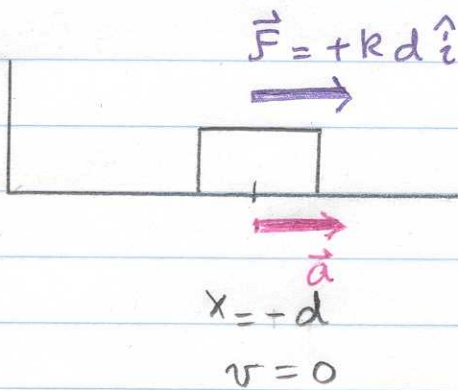 F⃗ = +k d î
a⃗
x = -d
v = 0